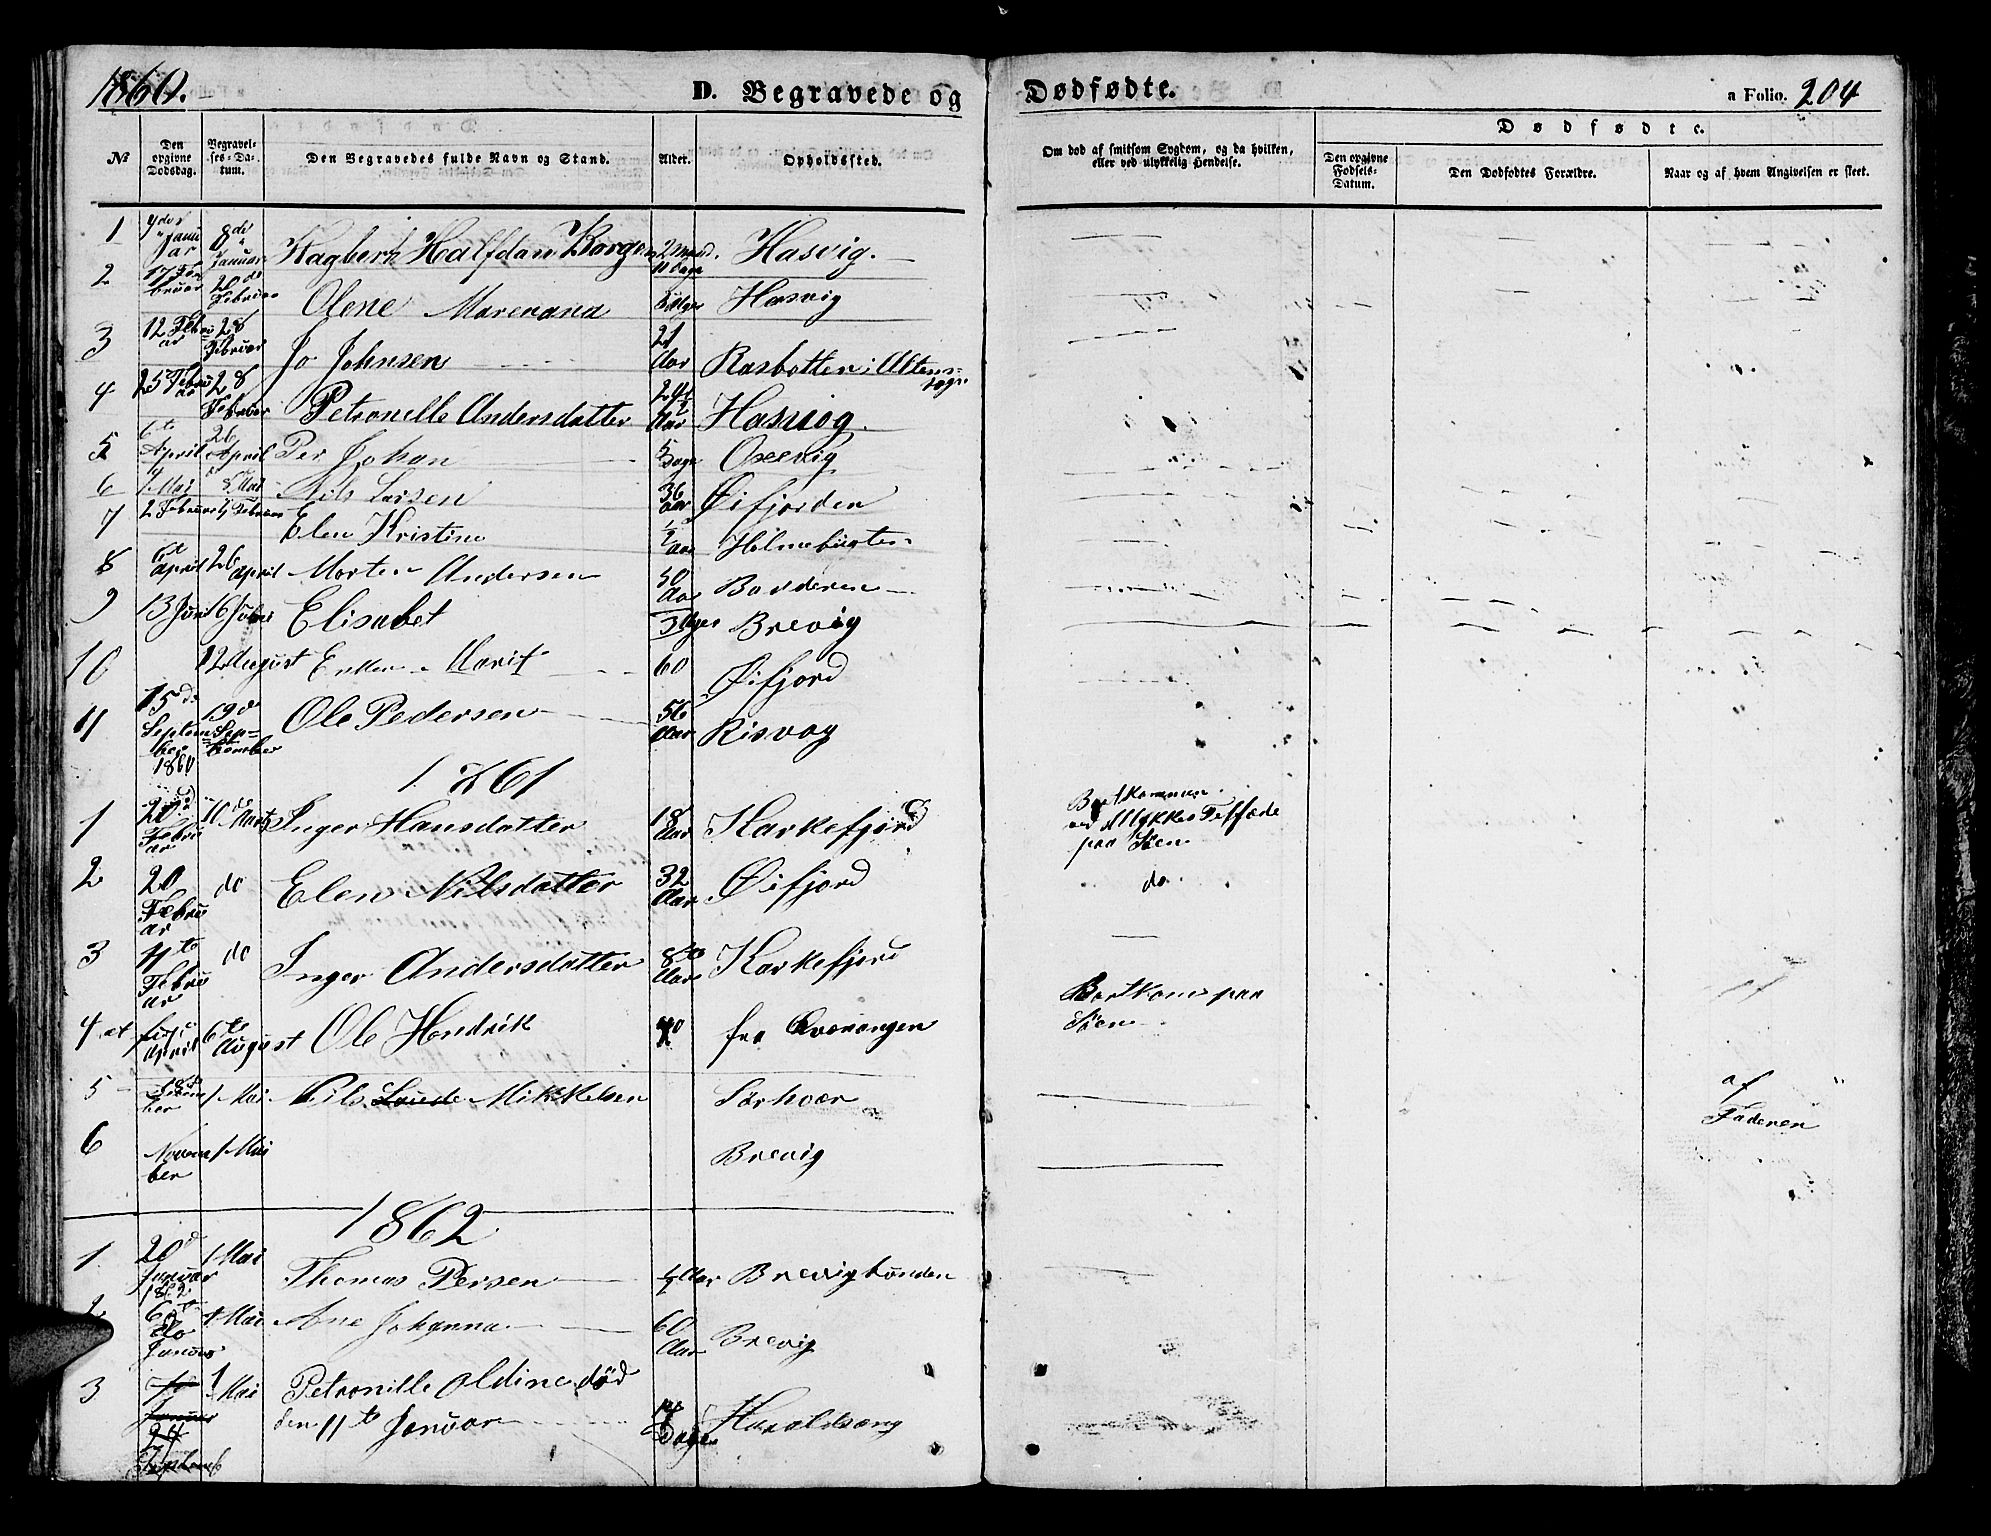 1860.
D. Begravede og Dødfødte.
a Folio. 204
No
Den opgivne Dødsdag.
Begravelses-Datum.
Den Begravedes fulde Navn og Stand.
Alder.
Opholdssted.
Om død af smitsom Sygdom, og da hvilken, eller ved ulykkelig Hendelse.
Dødfødte.
Den opgivne Fødsels-Datum.
Den Dødfødtes Forældre.
Naar og af hvem Angivelsen er skeet.
1 Januar 8de Januar Hagbert Halfdan Borgen 2 Maand. 11 Dage Hasvig.
2 17 Februar 20de Februar Olene Marenana Uger Hasvig
3 12 Februar 28 Februar Jo Johnsen 21 Aar Rasbotten i Altens Sogn
4 25 Februar 28 Februar Petronelle Andersdatter 24 1/2 Aar Hasvog
5 6te April 26 April Per Johan 5 Dage Oxevig
6 Mai 8 Mai Nils Larsen 36 Aar Øifjorden
7 2 Februar 4 Februar Elen Kristine 1/2 Aar Holmebugten
8 6te April 26 April Morten Andersen 50 Aar
9 13 Juni 16 Juni Elisabet 3 Uger Brevig
10 12 August Enken Marit 60 Øifjord
11 15de September 1860 19de September Ole Pedersen 56 Aar Risvog
1861
1 20de Februar 10de Marts Inger Hansdatter 18 Aar Karkefjord Bortkommen ved Ulykkes Tilfæde paa Søen
2 20 Februar do Elen Nilsdatter 32 Aar Øifjord do
3 11te Februar do Inger Andersdatter 8 Aar Karkefjord
4 April 6te August Ole Hendrik fra Qvænangen Bortkom paa Søen
5 1 Mai Nils Mikkelsen Sørhvær af Faderen
6 November 1 Mai Brevig
1862
1 20de Januar 1862 1 Mai Thomas Persen 1/2 Aar Brevigbunden
2 6te do Januar 1 Mai Ane Johanna 60 Aar Brevig
3 Januar 24 1 Mai Petronille Oldine død
den 11te Januar 14 Dage